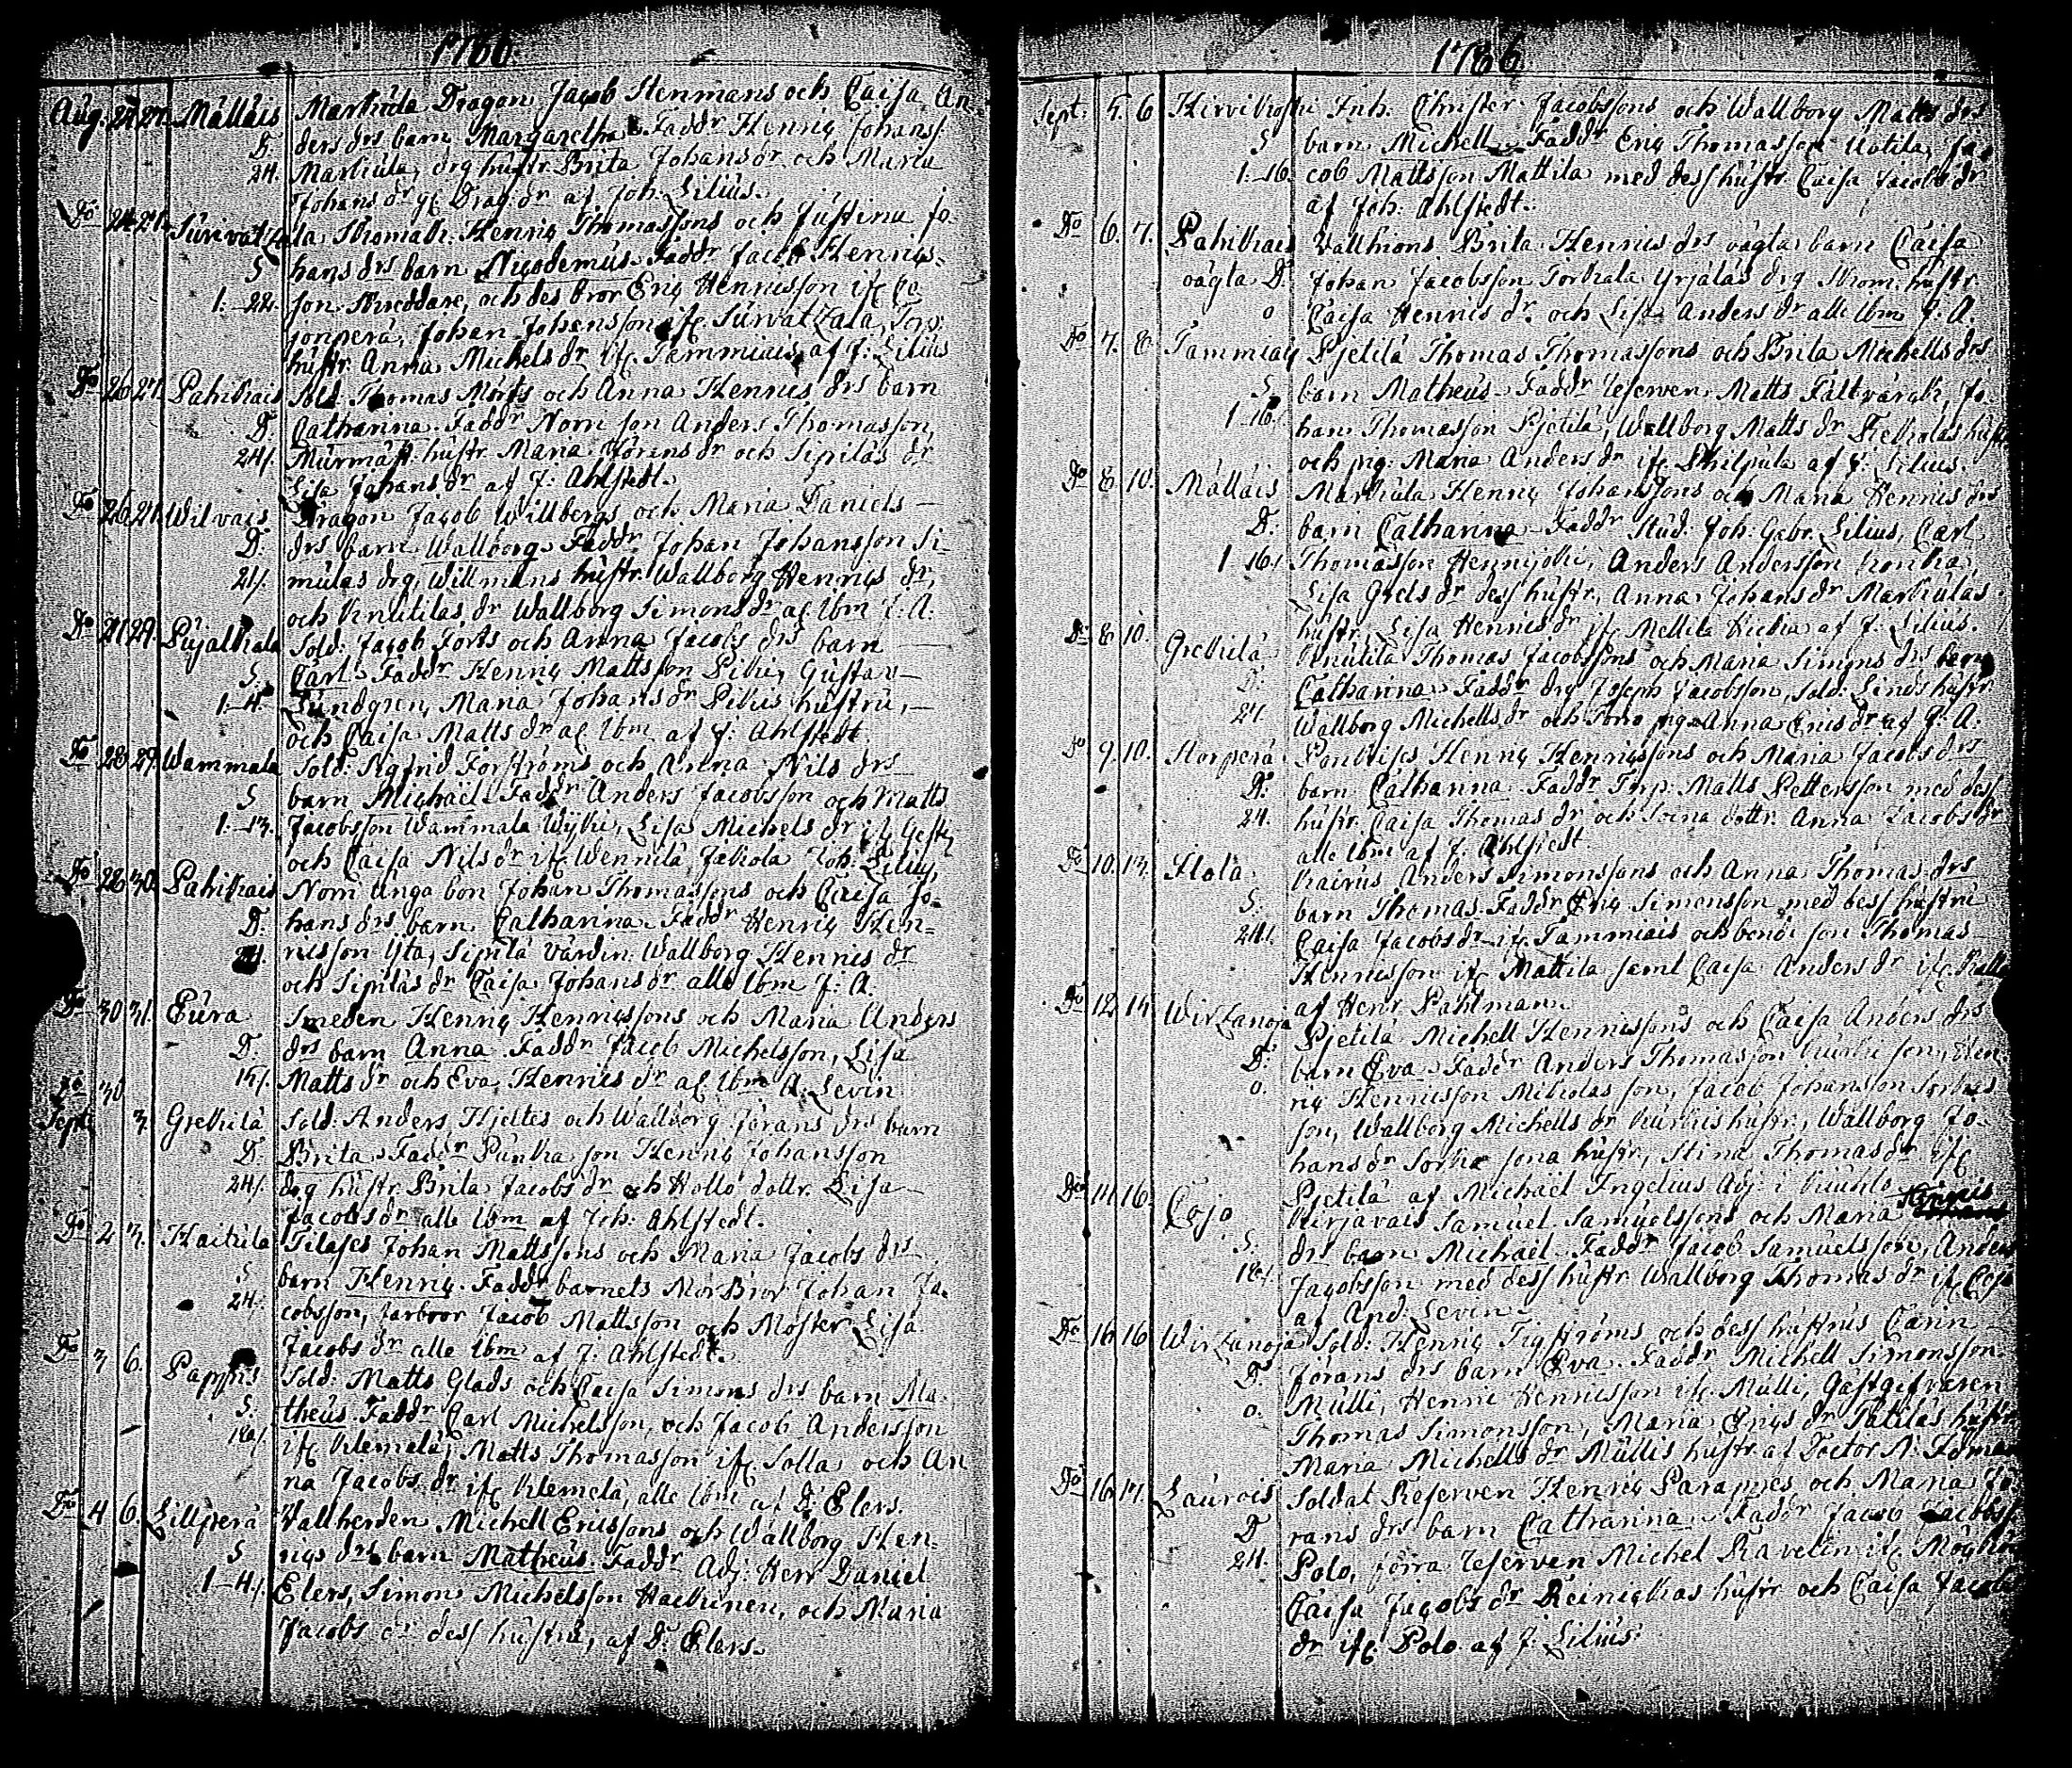 1786.
Aug. 22 27. Mällais Markula Dragon Jacob Stenmans och Caisa An
D. ders drs barn Margaretha. Faddr Henriq Johanss.
24. Markula, drg hustr. Brita Johansdr och Maria
Johans dr Drag. dr af Joh: Lilius.
Do 24 27. Thomas Henriq Thomassons och Justina Jo-
S hans drs barn Nicodemus. Faddr Jacob Henrics-
1.-22. son Skreddare, och des bror Eriq Henricsson
Johan Johansson Torp.
hustr. Anna Michels dr Temmiais af J: Lilius
Do 26 27. Pahikais Sold. Thomas Mörts och Anna Henrics drs barn
D. Catharina. Faddr Norri son Anders Thomasson,
24/. Murmäst. hustr. Maria Görans dr och Sipilas dr
Lisa Johans dr af J: Ahlstedt.
Do 26 27. Wilvais Dragon Jacob Willbergs och Maria Daniels
D. drs barn Wallborg. Faddr Johan Johansson Si-
24/. mulas drg, Willmans hustr. Wallborg Henriqs dr,
och Knutilas dr Wallborg Simonsdr af Ibm J: A.
Do 27 29. Pujalkala Sold: Jacob Torts och Anna Jacobs drs barn
S. Carl. Faddr Henriq Mattsson Piki, Gustav
1.-4. Lundgren, Maria Johansdr Pikis hustru,
och Caisa Matts dr af Ibm af J: Ahlstedt
Do 28 29. Wammala Sold: Sigfrid Forströms och Anna Nils drs
S barn Michael. Faddr Anders Jacobsson och Matts
1.-13. Jacobsson Wammala Wÿki, Lisa Michels dr
och Caisa Nilsdr Wennilä Joh: Lilius,
Do 28 30. Pahikais Norri Unga bon Johan Thomassons och Caisa Jo-
D. hans drs barn Catharina. Faddr Henriq Hen-
24. ricsson Yta, Sipila värdin: Wallborg Henrics dr
och Sipilas dr Caisa Johans dr. alle Ibm J: A.
Do 30 31. Eura Smeden Henriq Henriqssons och Maria Anders
D. drs barn Anna. Faddr Jacob Michelsson, Lisa
15/. Matts dr och Eva Henrics dr af Ibm A: Levin
Do 30
Sept. 3. Grekilä Sold: Anders Hjeltes och Wallborg Jörans drs barn
D. Brita. Faddr Punka son Henriq Johansson
24/. drg hustr Brita Jacobs dr och Hollo dottr. Lisa
Jacobs dr alle Ibm af Joh: Ahlstedt.
Do 2 3. Kaitula Tilases Johan Mattssons och Maria Jacobs drs
S barn Henriq. Faddr barnets Mor Bror Johan Ja-
24. cobsson, farbror Jacob Mattsson och Moster Lisa
Jacobs dr alle Ibm af J: Ahlstedt.
Do 3 6. Pappis Sold: Matts Glads och Caisa Simons drs barn Ma-
S. theus. Faddr Carl Michelsson, och Jacob Andersson
18/. Klemelä, Matts Thomasson Solla och An
na Jacobs dr Klemelä, alle Ibm af D: Elers.
Do 4 6. Lillperä Vallherden Michell Ericssons och Wallborg Hen-
S riqs drs barn Matheus. Faddr Adj: Herr Daniel
1-4/. Elers, Simon Michelsson Haikinen, och Maria
Jacobs dr dess hustru, af D: Elers.
1786.
Sept: 5. 6 Kirvikoski Inh: Christer Jacobssons och Wallborg Matts drs
S barn Michell. Faddr Eriq Thomasson Uotila, Ja-
1.-16. cob Mattsson Mattila med dess hustr. Caisa Jacobs dr
af Joh: Ahlstedt.
Do 6. 7. Pahikais Vallhions Brita Henrics drs oägta barn Caisa
oägta D. Johan Jacobsson Torkala Yrjäläs drg Thom: hustr
o Caisa Henrics dr. och Lisa Anders dr alle Ibm J: A.
Do 7. 8. Tammiais Pjetilä Thomas Thomassons och Brita Michells drs
S. barn Matheus. Faddr Reserven Matts Fältvärah, Jo-
1-16. han Thomasson Pjetilä, Wallborg Matts dr hustr
och pig: Maria Anders dr af J: Lilius.
Do 8 10. Mällais Markula Henriq Johanssons och Maria Henrics drs
D. barn Catharina. Faddr Stud. Joh: Gabr. Lilius, Carl
1-16. Thomasson Hennijoki, Anders Andersson
Lisa Grels dr dess hustr, Anna Johans dr Markulas
hustr, Lisa Henrics dr Mellilä af J: Lilius.
Do 8 10. Grekilä Knutila Thomas Jacobssons och Maria Simons drs barn
D. Catharina. Faddr drg Joseph Jacobsson, Sold: Linds hustr
24 Wallborg Michells dr och pig: Anna Erics dr af J: A:
Do 9. 10. Storperä Henriq Henriqssons och Maria Jacobs drs
D. barn Catharina. Faddr Torp: Matts Pettersson med dess
24. hustr. Caisa Thomas dr och dottr. Anna Jacobs dr
alle Ibm af J. Ahlstedt.
Do 10. 13. Hola Kairus Anders Simonssons och Anna Thomas drs
S. barn Thomas. Faddr Eriq Simonsson med dess hustru
24/. Caisa Jacobs dr Tammiais och son Thomas
Henricsson Mattila samt Caisa Anders dr
af Henr: Pahlman
Do 12 14 Wirzanoja Pjetilä Michell Henricssons och Caisa Anders drs
D. barn Eva. Faddr Anders Thomasson Kurki son, Hen-
o. riq Henricsson Mikolas son, Jacob Johansson Sorkas
son, Wallborg Michells dr Kurkis hustr, Wallborg Jo-
hans dr Sorka sona hustr, Stina Thomas dr
Pjetilä af Michael Ingelius Adj: i
Do 14 16. Cojo Kirjavais Samuel Samuelssons och Maria Henrics
S. drs barn Michael. Faddr Jacob Samuelsson, Anders
18/. Jacobsson med dess hustr Wallborg Thomas dr Cojo
af And: Levin.
Do 16 16 Wirzanoja Sold: Henriq Tigströms och dess hustrus Carin
D. Jörans drs barn Eva. Faddr Michell Simonsson
o. Mulli, Henric Henricsson Mulli, Gästgifvaren
Thomas Simonsson, Maria Eriqs dr hustr
Maria Michells dr Mullis hustr. af Doctor N:
Do 16 17. Laurois Soldat Reserven Henriq Parapjes och Maria Jö-
D rans drs barn Catharina. Faddr Jacob Jacobss.
24. Polo, förra Reserven Michel Ravelin
Caisa Jacobs dr Reinickas hustr och Caisa Jacobs
dr Polo af J. Lilius.